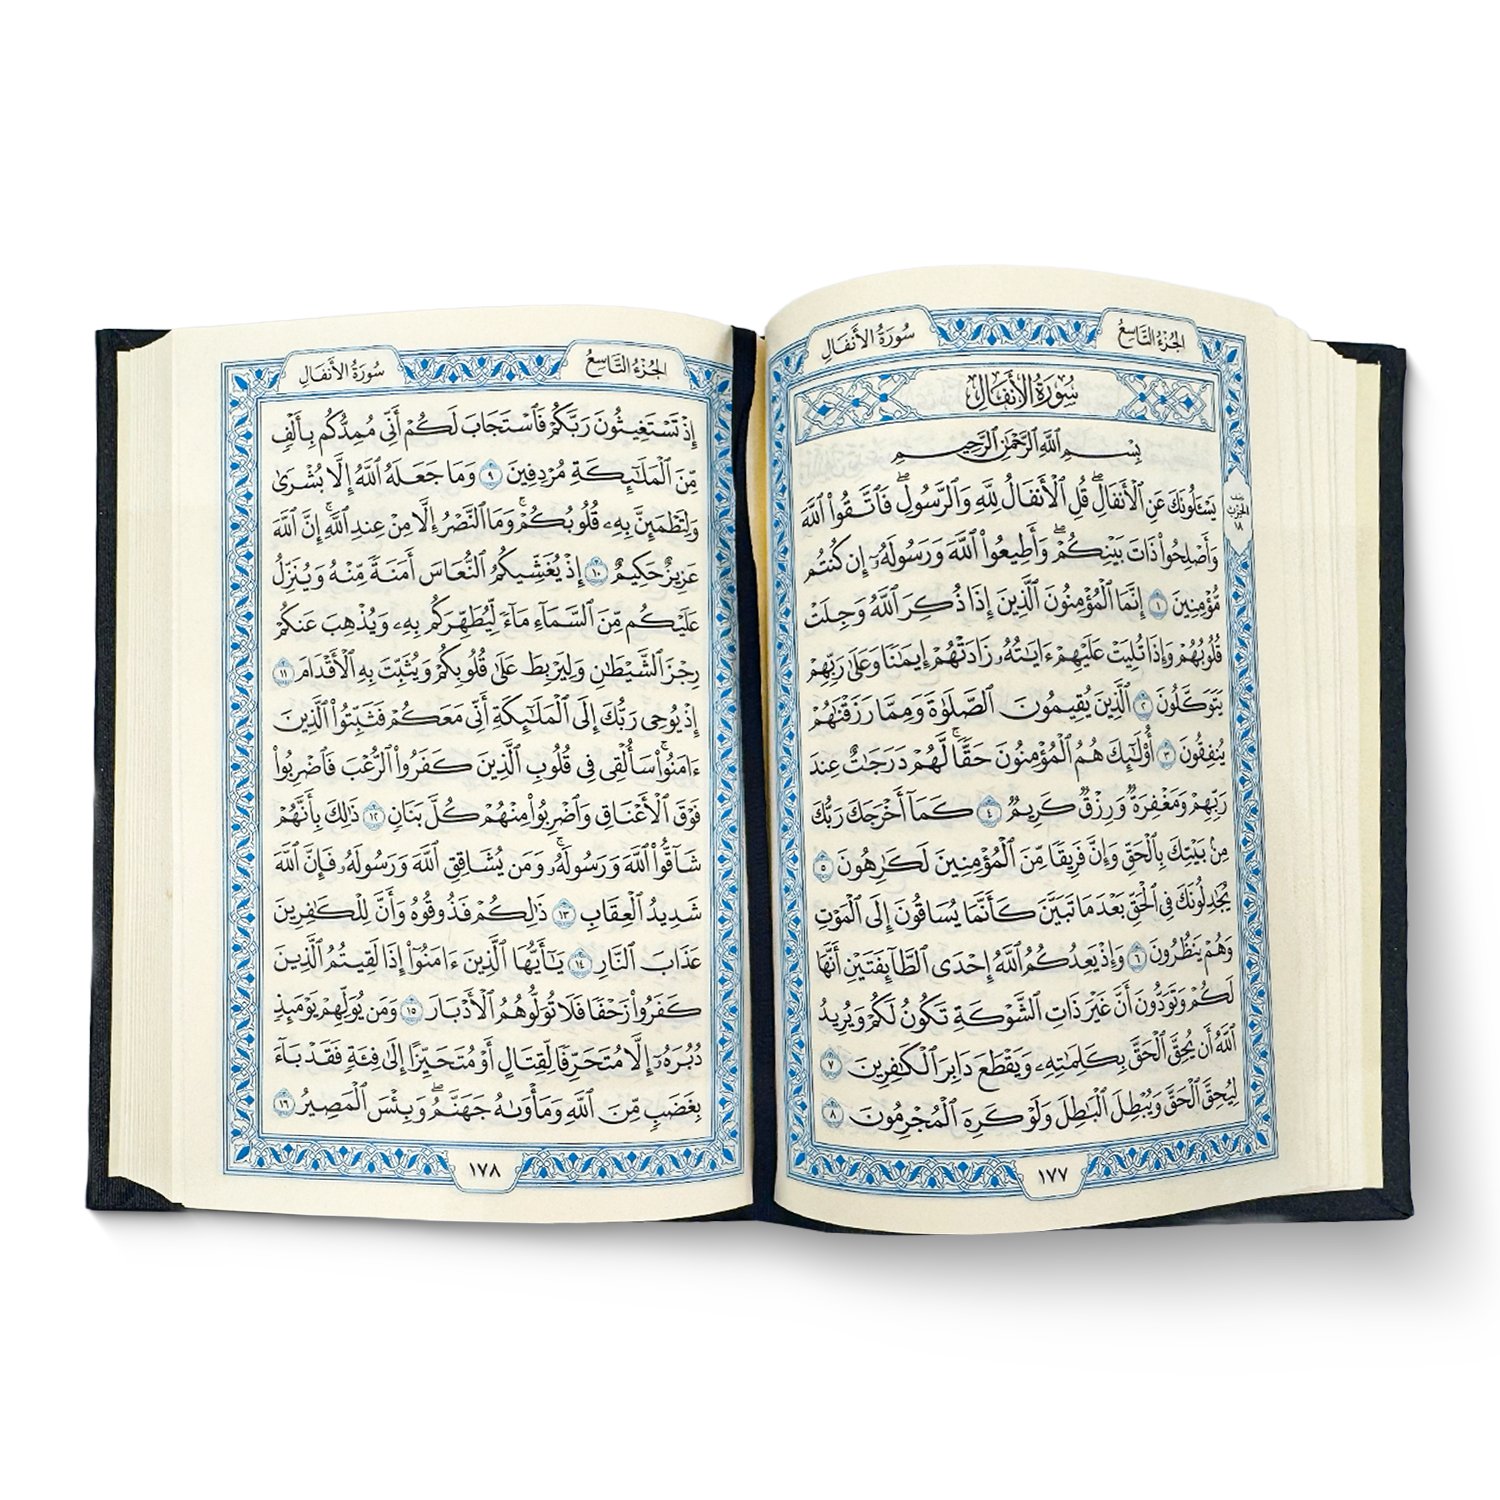 الجُزْءُ التَّاسِعُ
سُورَةُ الأَنفَالِ
سُورَةُ الأَنفَالِ
بِسْمِ ٱللَّهِ ٱلرَّحْمَٰنِ ٱلرَّحِيمِ
يَسْـَٔلُونَكَ عَنِ ٱلْأَنفَالِۖ قُلِ ٱلْأَنفَالُ لِلَّهِ وَٱلرَّسُولِۖ فَٱتَّقُوا۟ ٱللَّهَ
وَأَصْلِحُوا۟ ذَاتَ بَيْنِكُمْۖ وَأَطِيعُوا۟ ٱللَّهَ وَرَسُولَهُۥٓ إِن كُنتُم
مُّؤْمِنِينَ ١ إِنَّمَا ٱلْمُؤْمِنُونَ ٱلَّذِينَ إِذَا ذُكِرَ ٱللَّهُ وَجِلَتْ
قُلُوبُهُمْ وَإِذَا تُلِيَتْ عَلَيْهِمْ ءَايَٰتُهُۥ زَادَتْهُمْ إِيمَٰنًا وَعَلَىٰ رَبِّهِمْ
يَتَوَكَّلُونَ ٢ ٱلَّذِينَ يُقِيمُونَ ٱلصَّلَوٰةَ وَمِمَّا رَزَقْنَٰهُمْ
يُنفِقُونَ ٣ أُو۟لَٰٓئِكَ هُمُ ٱلْمُؤْمِنُونَ حَقًّاۚ لَّهُمْ دَرَجَٰتٌ عِندَ
رَبِّهِمْ وَمَغْفِرَةٌ وَرِزْقٌ كَرِيمٌ ٤ كَمَآ أَخْرَجَكَ رَبُّكَ
مِنۢ بَيْتِكَ بِٱلْحَقِّ وَإِنَّ فَرِيقًا مِّنَ ٱلْمُؤْمِنِينَ لَكَٰرِهُونَ ٥
يُجَٰدِلُونَكَ فِى ٱلْحَقِّ بَعْدَ مَا تَبَيَّنَ كَأَنَّمَا يُسَاقُونَ إِلَى ٱلْمَوْتِ
وَهُمْ يَنظُرُونَ ٦ وَإِذْ يَعِدُكُمُ ٱللَّهُ إِحْدَى ٱلطَّآئِفَتَيْنِ أَنَّهَا
لَكُمْ وَتَوَدُّونَ أَنَّ غَيْرَ ذَاتِ ٱلشَّوْكَةِ تَكُونُ لَكُمْ وَيُرِيدُ
ٱللَّهُ أَن يُحِقَّ ٱلْحَقَّ بِكَلِمَٰتِهِۦ وَيَقْطَعَ دَابِرَ ٱلْكَٰفِرِينَ ٧
لِيُحِقَّ ٱلْحَقَّ وَيُبْطِلَ ٱلْبَٰطِلَ وَلَوْ كَرِهَ ٱلْمُجْرِمُونَ ٨
الحِزْبُ
١٨
١٧٧
الجُزْءُ التَّاسِعُ
سُورَةُ الأَنفَالِ
إِذْ تَسْتَغِيثُونَ رَبَّكُمْ فَٱسْتَجَابَ لَكُمْ أَنِّى مُمِدُّكُم بِأَلْفٍ
مِّنَ ٱلْمَلَٰٓئِكَةِ مُرْدِفِينَ ٩ وَمَا جَعَلَهُ ٱللَّهُ إِلَّا بُشْرَىٰ
وَلِتَطْمَئِنَّ بِهِۦ قُلُوبُكُمْۚ وَمَا ٱلنَّصْرُ إِلَّا مِنْ عِندِ ٱللَّهِۚ إِنَّ ٱللَّهَ
عَزِيزٌ حَكِيمٌ ١٠ إِذْ يُغَشِّيكُمُ ٱلنُّعَاسَ أَمَنَةً مِّنْهُ وَيُنَزِّلُ
عَلَيْكُم مِّنَ ٱلسَّمَآءِ مَآءً لِّيُطَهِّرَكُم بِهِۦ وَيُذْهِبَ عَنكُمْ
رِجْزَ ٱلشَّيْطَٰنِ وَلِيَرْبِطَ عَلَىٰ قُلُوبِكُمْ وَيُثَبِّتَ بِهِ ٱلْأَقْدَامَ ١١
إِذْ يُوحِى رَبُّكَ إِلَى ٱلْمَلَٰٓئِكَةِ أَنِّى مَعَكُمْ فَثَبِّتُوا۟ ٱلَّذِينَ
ءَامَنُوا۟ۚ سَأُلْقِى فِى قُلُوبِ ٱلَّذِينَ كَفَرُوا۟ ٱلرُّعْبَ فَٱضْرِبُوا۟
فَوْقَ ٱلْأَعْنَاقِ وَٱضْرِبُوا۟ مِنْهُمْ كُلَّ بَنَانٍ ١٢ ذَٰلِكَ بِأَنَّهُمْ
شَآقُّوا۟ ٱللَّهَ وَرَسُولَهُۥۚ وَمَن يُشَاقِقِ ٱللَّهَ وَرَسُولَهُۥ فَإِنَّ ٱللَّهَ
شَدِيدُ ٱلْعِقَابِ ١٣ ذَٰلِكُمْ فَذُوقُوهُ وَأَنَّ لِلْكَٰفِرِينَ
عَذَابَ ٱلنَّارِ ١٤ يَٰٓأَيُّهَا ٱلَّذِينَ ءَامَنُوٓا۟ إِذَا لَقِيتُمُ ٱلَّذِينَ
كَفَرُوا۟ زَحْفًا فَلَا تُوَلُّوهُمُ ٱلْأَدْبَارَ ١٥ وَمَن يُوَلِّهِمْ يَوْمَئِذٍ
دُبُرَهُۥٓ إِلَّا مُتَحَرِّفًا لِّقِتَالٍ أَوْ مُتَحَيِّزًا إِلَىٰ فِئَةٍ فَقَدْ بَآءَ
بِغَضَبٍ مِّنَ ٱللَّهِ وَمَأْوَىٰهُ جَهَنَّمُۖ وَبِئْسَ ٱلْمَصِيرُ ١٦
١٧٨